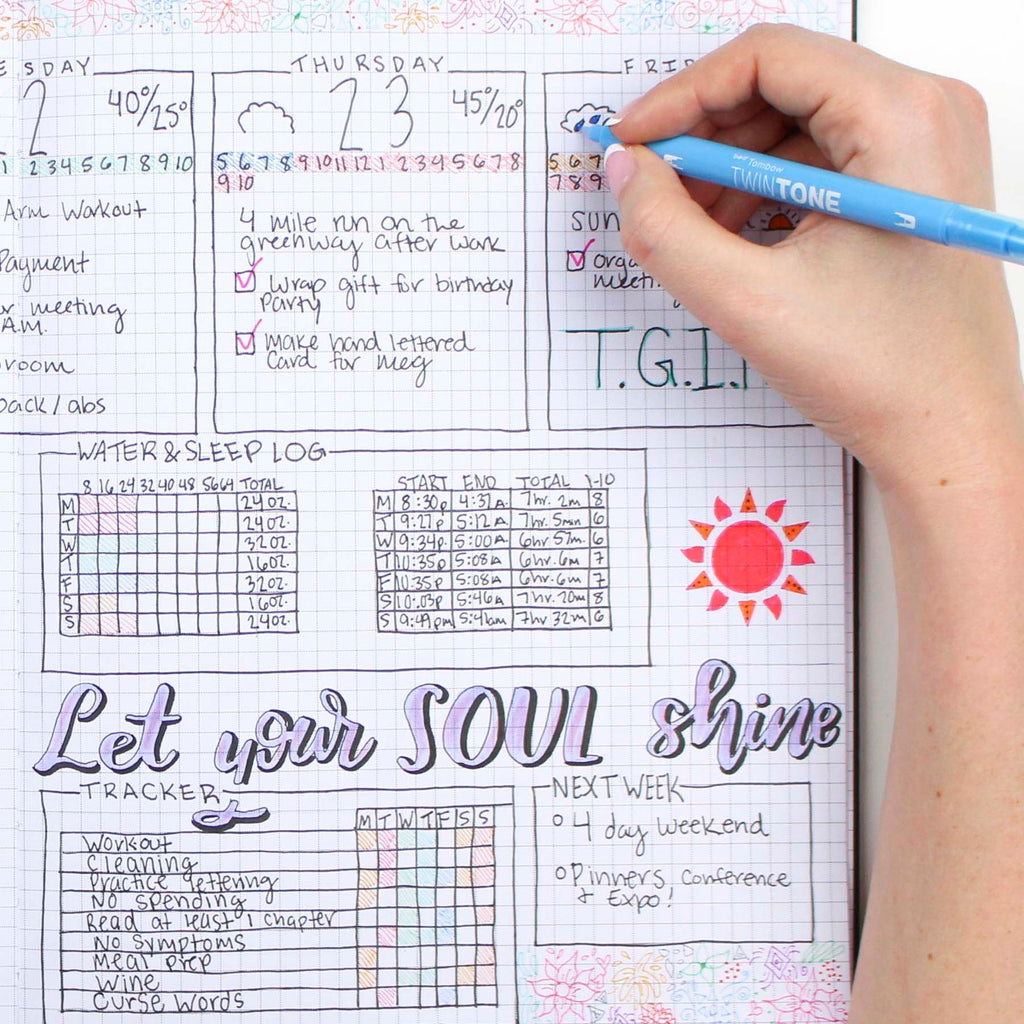 SDAY
2
40°/25°
1 2 3 4 5 6 7 8 9 10
Arm Workout
Payment
meeting
A.M.
room
back / abs
THURSDAY
23
45°/20°
5 6 7 8 9 10 11 12 1 2 3 4 5 6 7 8
9 10
4 mile run on the
greenway after work
wrap gift for birthday
Party
Make hand lettered
Card for meg
FRI
5 6 7
7 8 9
SUN
T.G.I.
Tombow
TWINTONE
WATER & SLEEP LOG
8 16 24 32 40 48 56 64 TOTAL
M 24oz.
T 24oz.
W 32oz.
T 16oz.
F 32oz.
S 16oz.
S 24oz.
START END TOTAL 1-10
M 8:30p 4:37A. 7hr. 2m 8
T 9:27p 5:12A 7hr. 5min 6
W 9:34p. 5:00A 6hr 57m. 6
T 10:35p 5:08A 6hr.6m 7
F 10:35p 5:08A 6hr.6m 7
S 10:03p 5:46A 7hr.20m 8
S 9:49pm 5:41am 7hr 32m 6
Let your SOUL shine
TRACKER
M T W T F S S
Workout
Cleaning
Practice lettering
No spending
Read at least 1 chapter
No Symptoms
Meal prep
Wine
Curse Words
NEXT WEEK
4 day weekend
Pinners Conference
+ Expo!